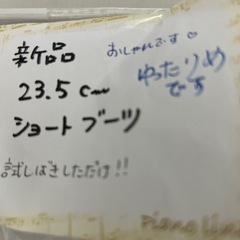 新品
おしゃれです♡
23.5cm
ゆったりめ
です
ショートブーツ
試しばきしただけ!!